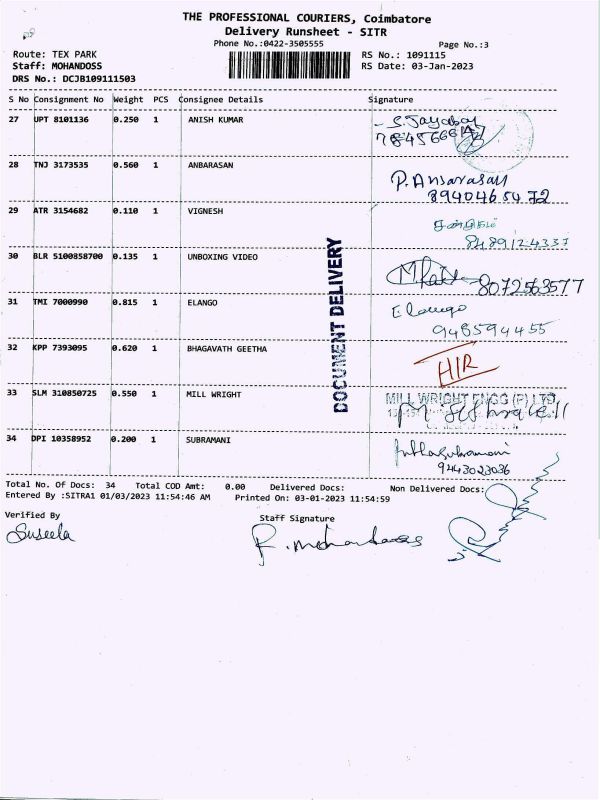 THE PROFESSIONAL COURIERS, Coimbatore
Delivery Runsheet - SITR
Phone No.:0422-3505555
Page No.:3
Route: TEX PARK
RS No.: 1091115
Staff: MOHANDOSS
RS Date: 03-Jan-2023
DRS No.: DCJB109111503
S No Consignment No Weight PCS Consignee Details Signature
27 UPT 8101136 0.250 1 ANISH KUMAR
S. Jayabal
28 TNJ 3173535 0.560 1 ANBARASAN
P. Ansarasan
8940465472
29 ATR 3154682 0.110 1 VIGNESH
8489124337
30 BLR 5100858700 0.135 1 UNBOXING VIDEO
8072563577
31 TMI 7000990 0.815 1 ELANGO
Elango
948594455
32 KPP 7393095 0.620 1 BHAGAVATH GEETHA
HIR
33 SLM 310850725 0.550 1 MILL WRIGHT
MILL WRIGHT ENGG (P) LTD,
34 DPI 10358952 0.200 1 SUBRAMANI
9443023036
DOCUMENT DELIVERY
Total No. Of Docs: 34 Total COD Amt: 0.00 Delivered Docs: Non Delivered Docs:
Entered By :SITRA1 01/03/2023 11:54:46 AM Printed On: 03-01-2023 11:54:59
Verified By
Staff Signature
Suseela
R. Mohandoss